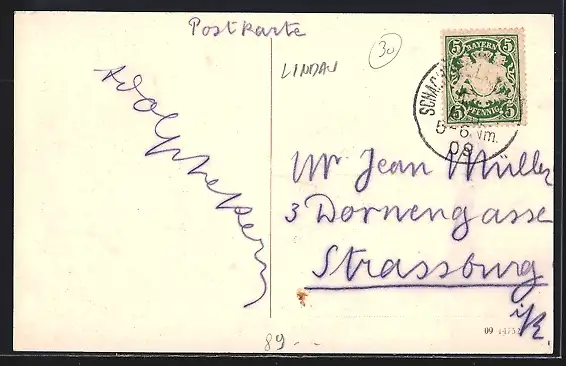 Postkarte
LINDAU
30
5 BAYERN 5
5 PFENNIG 5
SCHACH
5-6 Nm.
09
Mr Jean Müller
3 Dornengasse
Strassburg
i/E.
Adolphe Kern
09 1475
89 - -